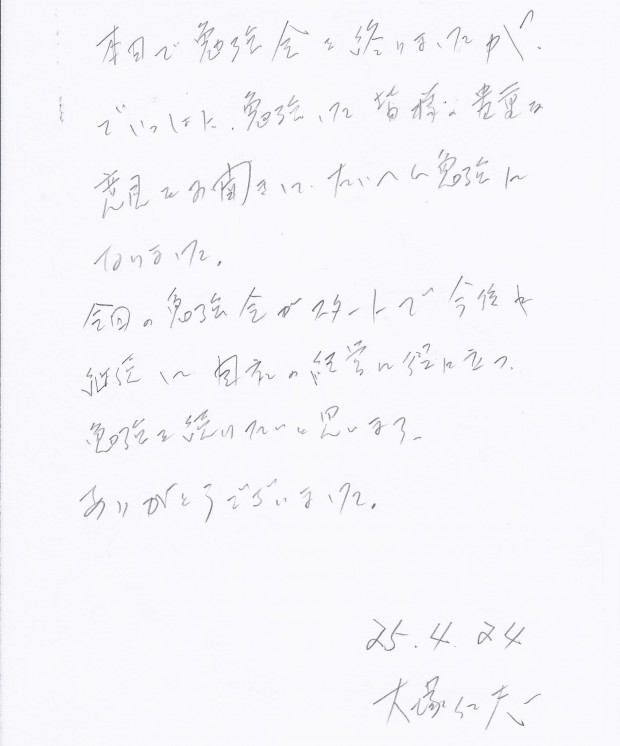 本日で勉強会を終りましたが、
勉強した 皆様の貴重な
意見をお聞きして、たいへん勉強に
なりました。
今回の勉強会がスタートで今後も
継続して自社の経営に役に立つ
勉強を続けたいと思います。
ありがとうございました。
25.4.24
大塚仁志